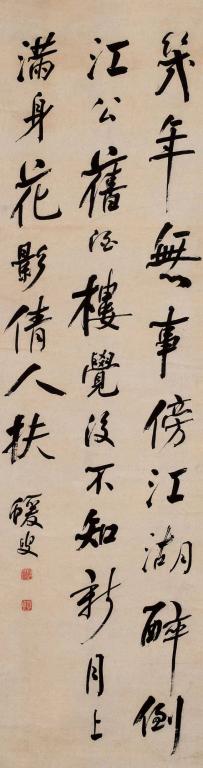 幾年無事傍江湖醉倒
江公舊酒樓覺後不知新月上
滿身花影倩人扶
蝯叟